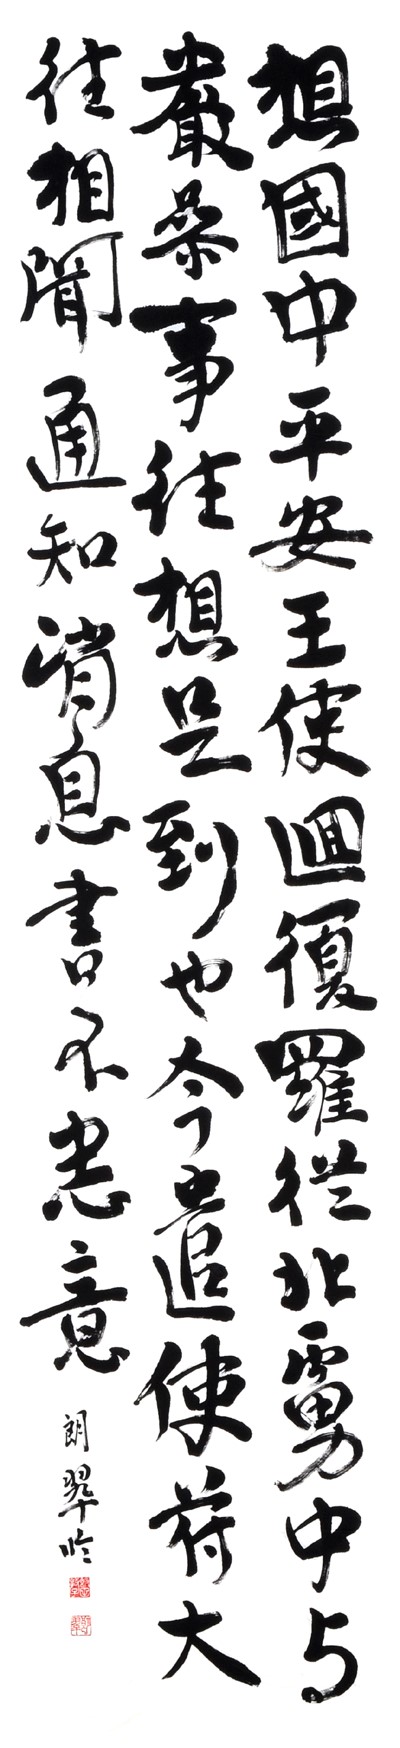 想國中平安王使迴復羅從北虜中与
嚴參事往想是到也今遣使苻大
往相聞通知消息書不悉意
朗翠臨